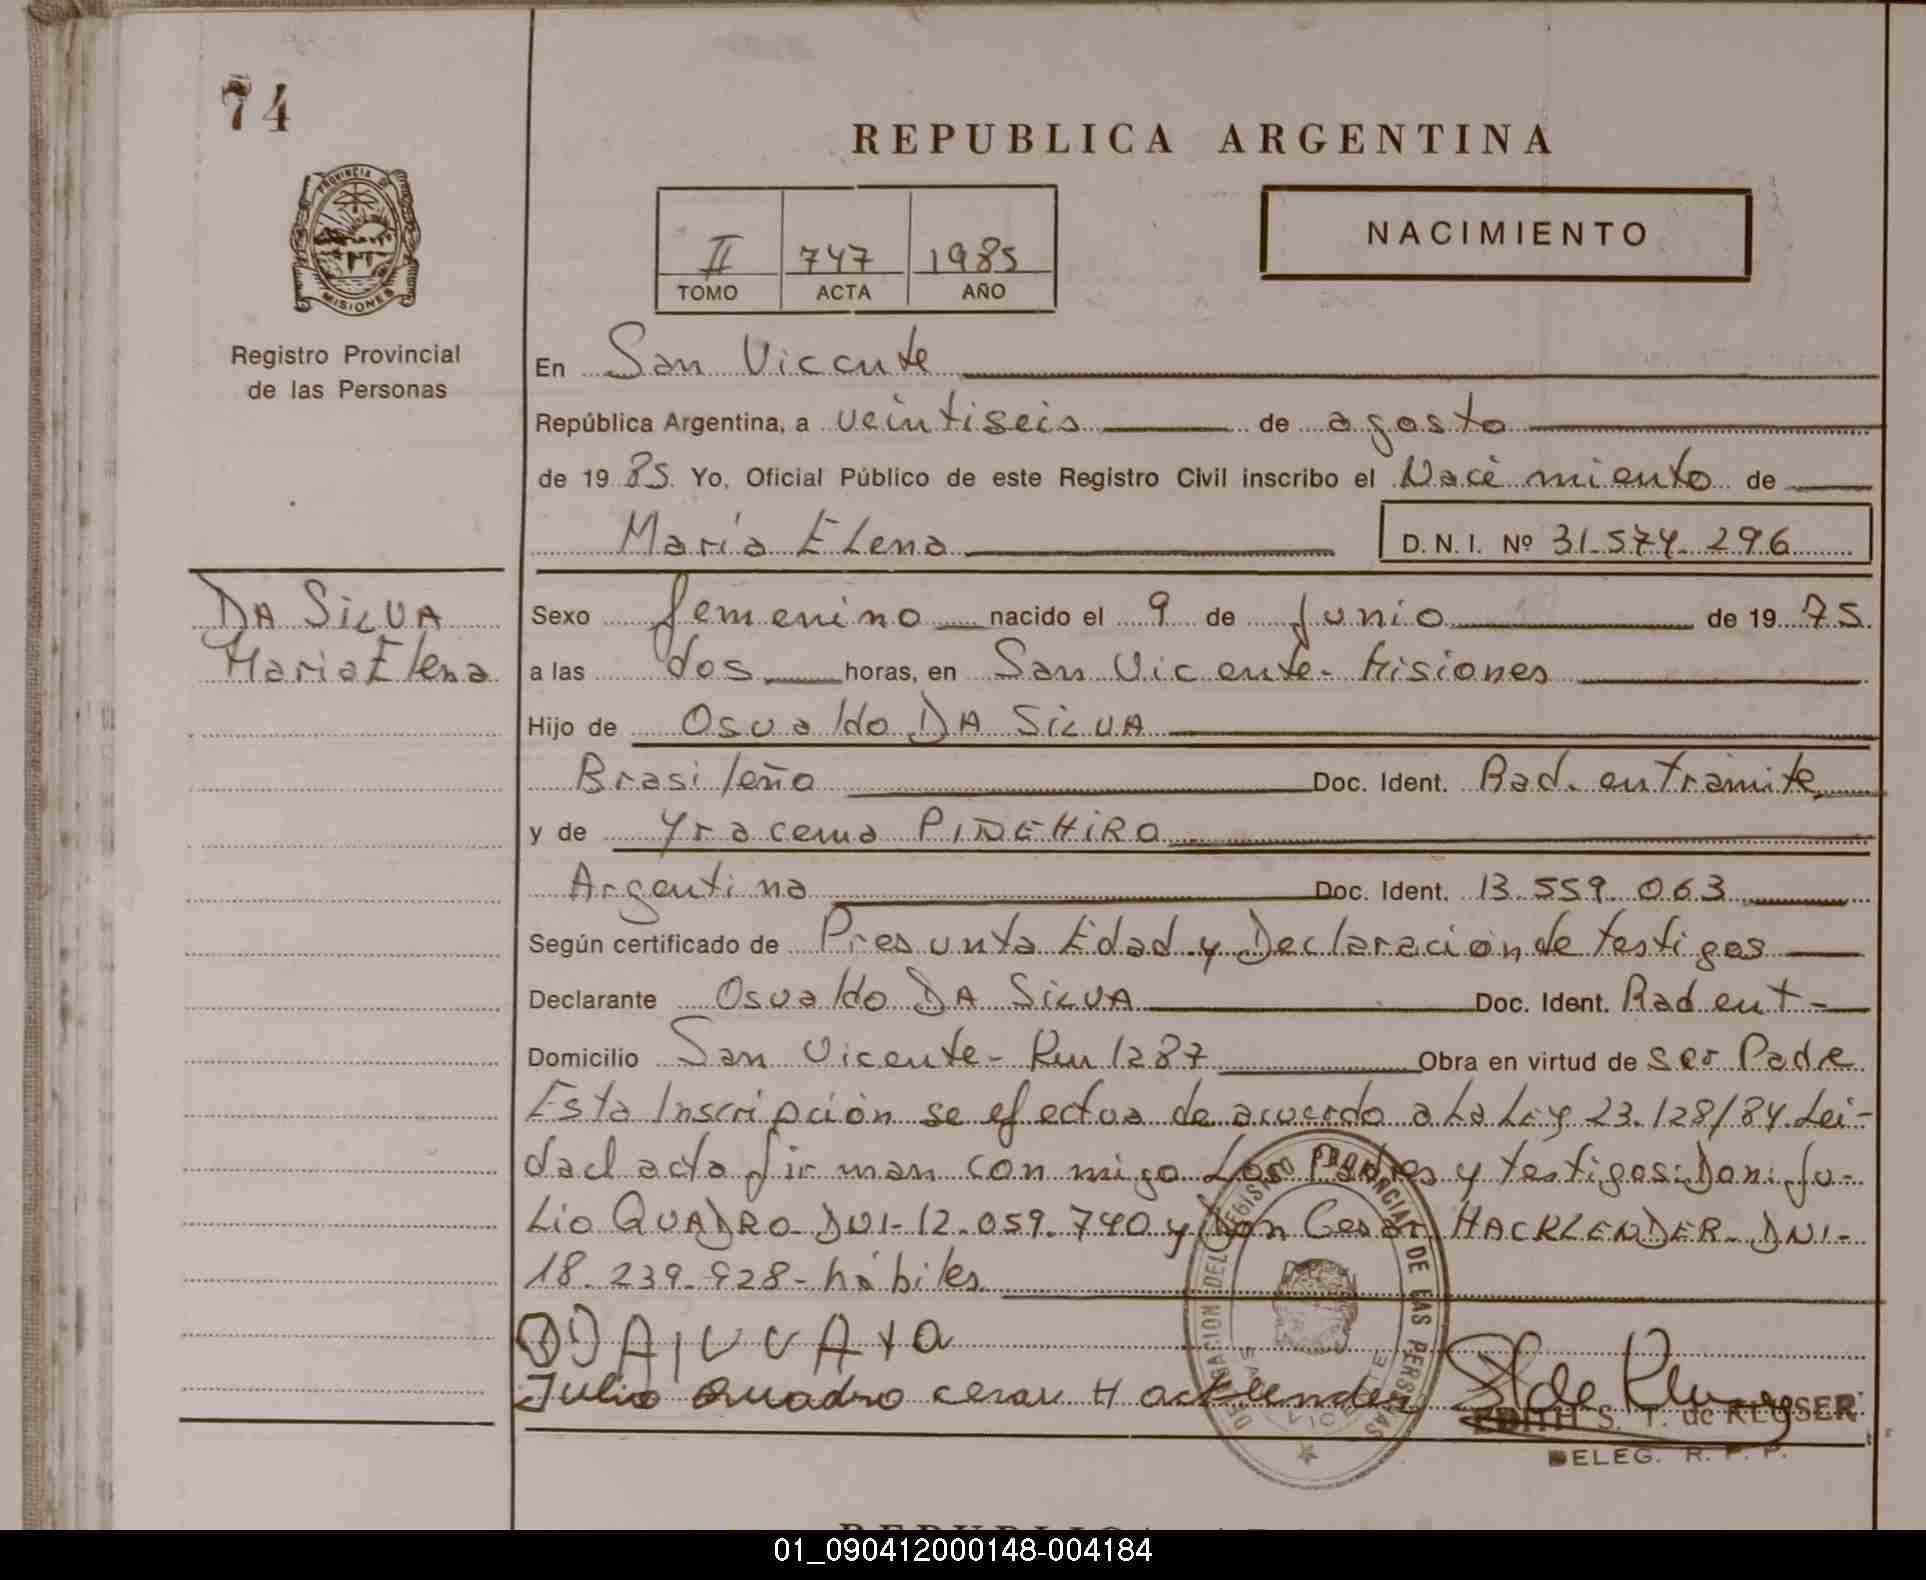 74
REPUBLICA ARGENTINA
PROVINCIA DE
MISIONES
Registro Provincial
de las Personas
II 747 1985
TOMO ACTA AÑO
NACIMIENTO
En San Vicente
República Argentina, a veintiseis de agosto
de 19 85 Yo, Oficial Público de este Registro Civil inscribo el Nacimiento de
María Elena D.N.I. Nº 31.574.296
DA SILVA
Maria Elena
Sexo femenino nacido el 9 de Junio de 19 75
a las dos horas, en San Vicente - Misiones
Hijo de Osvaldo DA SILVA
Brasileño Doc. Ident. Rad. en trámite
y de Yracema PIÑEHIRO
Argentina Doc. Ident. 13.559.063
Según certificado de Presunta Edad y Declaración de testigos
Declarante Osvaldo DA SILVA Doc. Ident. Rad en t-
Domicilio San Vicente - Km 1287 Obra en virtud de ser Padre
Esta Inscripción se efectua de acuerdo a La Ley 23.128/84. Lei-
da el acta firman con migo Los Padres y testigos: Don: Ju-
Lio QUADRO DNI-12.059.740 y Don Cesar HACKLENDER - DNI-
18.239.928 - hábiles
Julio Quadro cesar Hacklender
DELEGACION DEL REGISTRO PROVINCIAL DE LAS PERSONAS
SAN VICENTE
EDITH S. T. de KLUSER
DELEG. R. P. P.
01_090412000148-004184